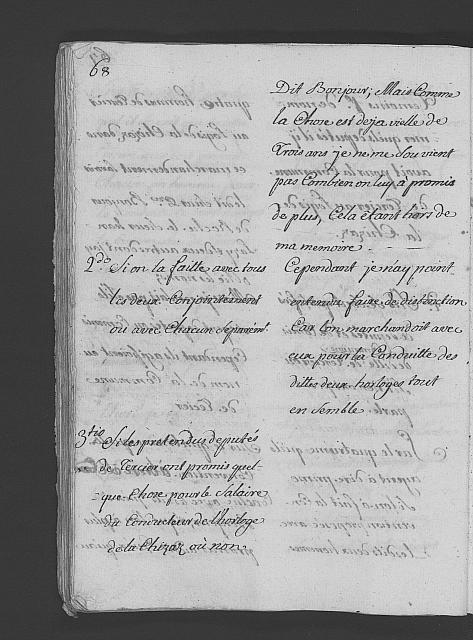 68
Dit Bonjour; Mais Comme
la Chose est deja vielle de
Trois ans je ne me Souvient
pas Combien on luy a promis
de plus, Cela étant hors de
ma memoire.
2.do Si on la faitte avec tous
les deux Conjointement
ou avec Chacun separem.t
Cependant je n'ay point
entendu faire de distinction
Car l'on marchandoit avec
eux pour la Conduitte des
dittes deux horloges tout
en semble
3.tio Si les pretendus deputés
de Tercier ont promis quel
que Chose pour le Salaire
du Conducteur de l'horloge
de la Chizaz où non.